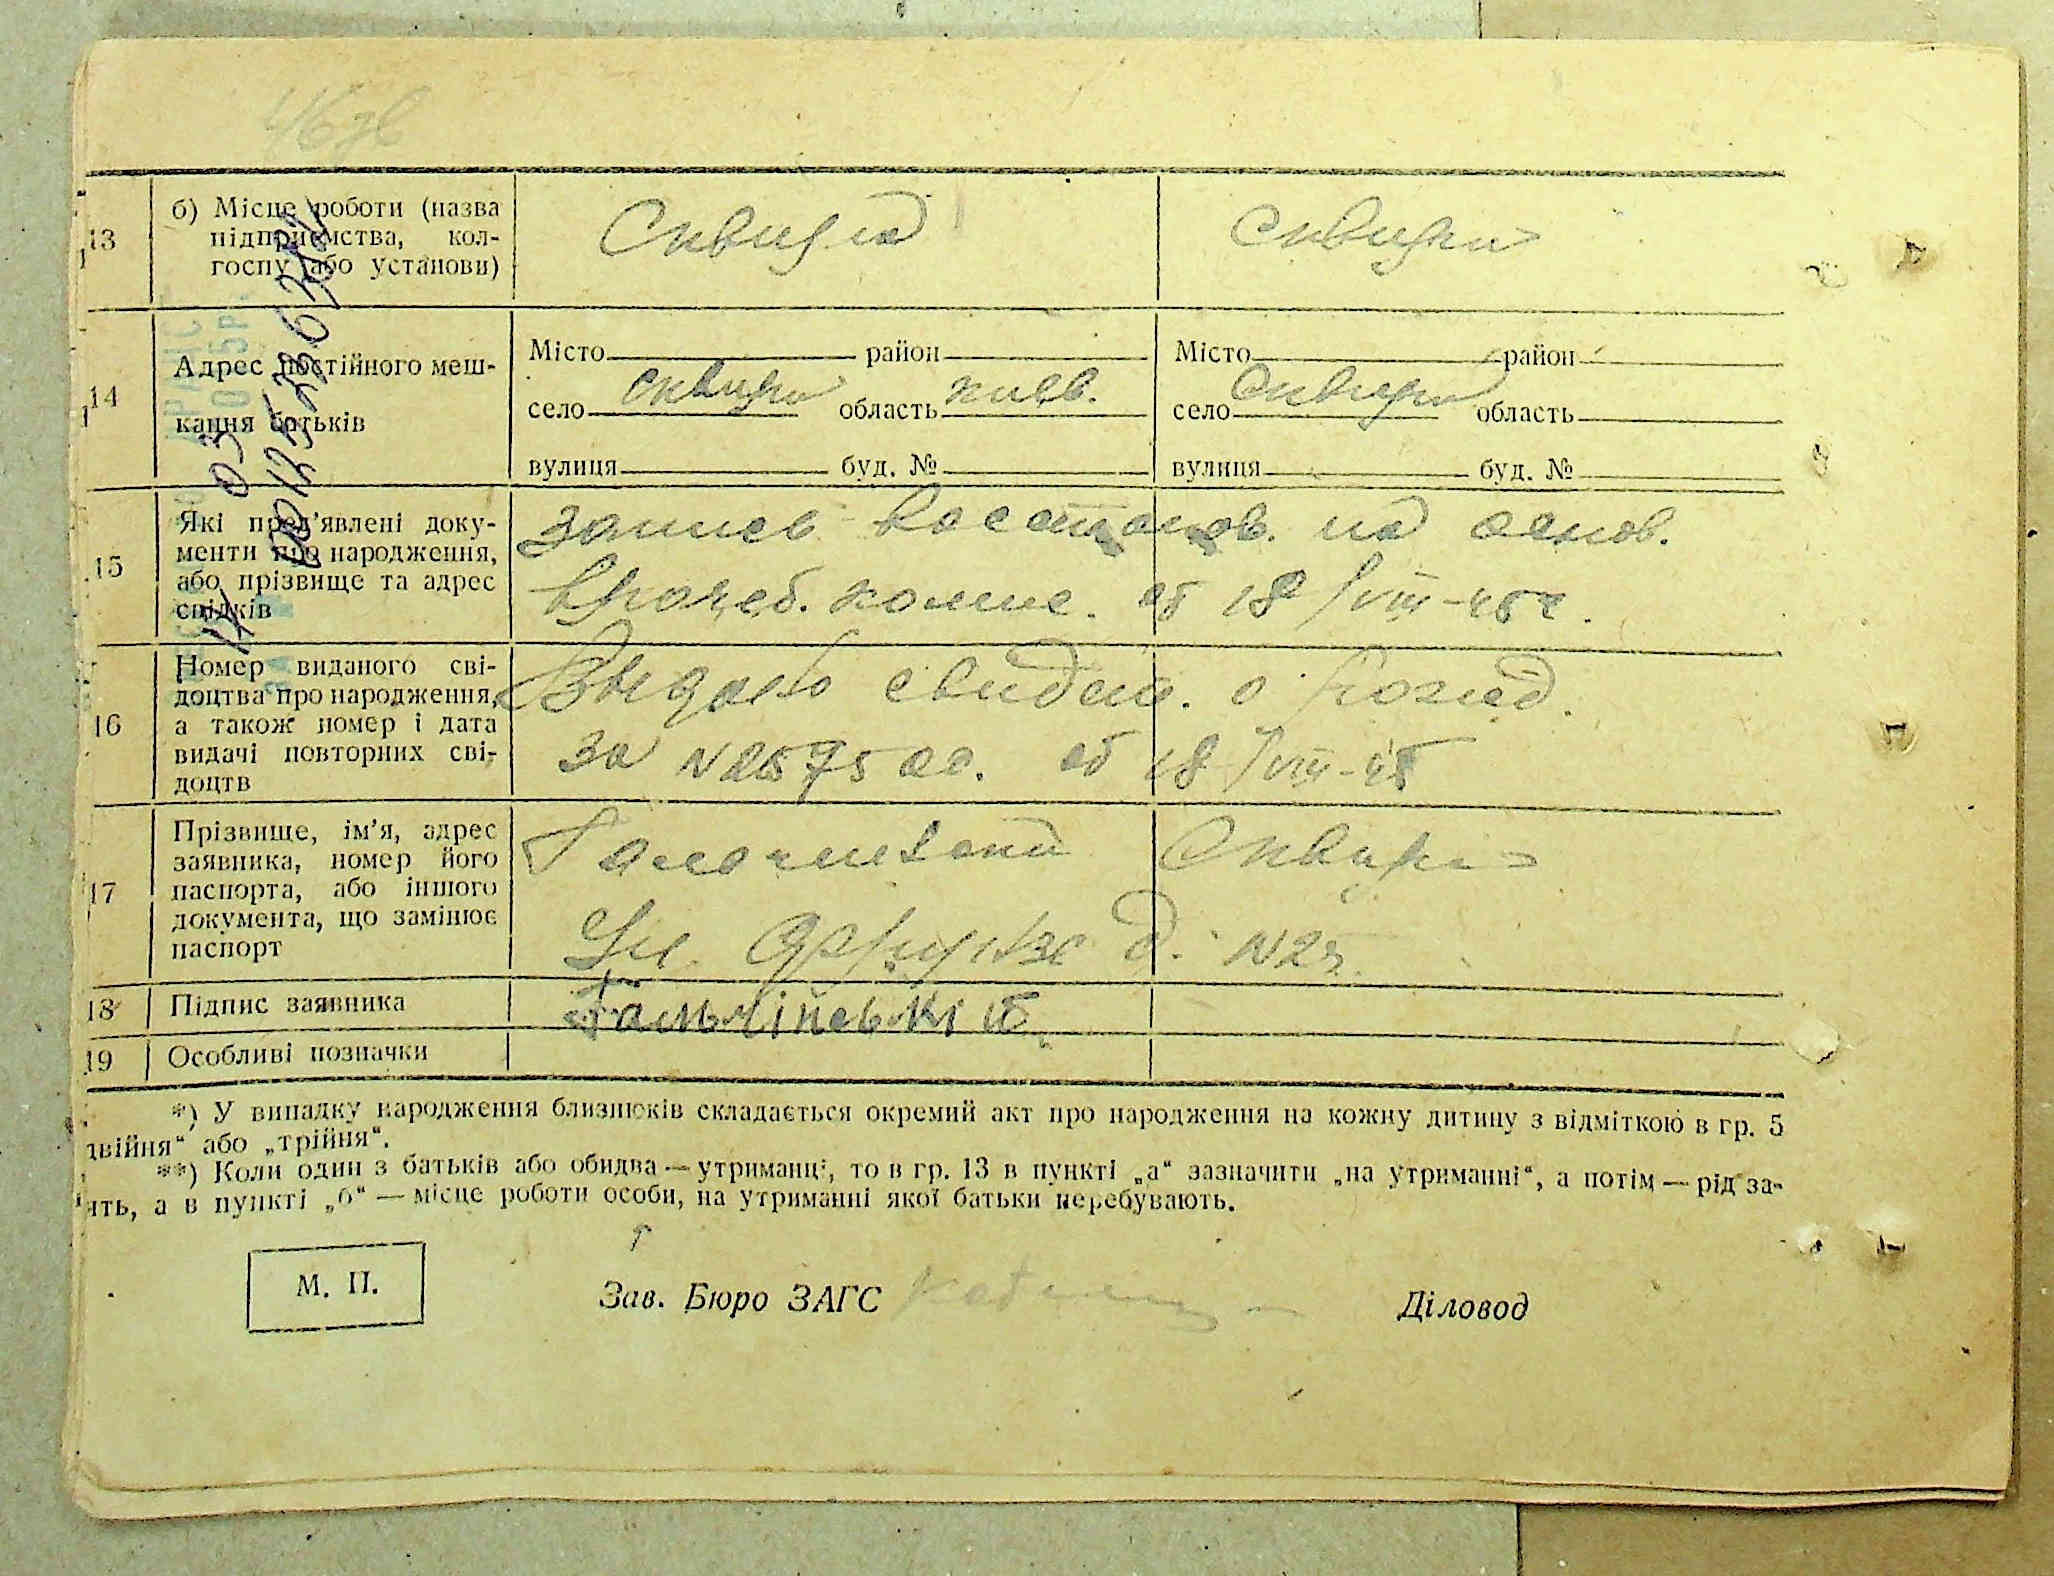 13
б) Місце роботи (назва
підприємства, кол-
госпу або установи)
Сквира
Сквира
14
Адрес постійного меш-
кання батьків
Місто район
село Сквира область київ.
вулиця буд. №
Місто район
село Сквира область
вулиця буд. №
15
Які пред'явлені доку-
менти про народження,
або прізвище та адрес
свідків
запись восстанов. на основ.
врачеб. комис. от 18/VIII-45 г.
16
Номер виданого сві-
доцтва про народження,
а також номер і дата
видачі повторних сві-
доцтв
Выдано свидет. о рожд.
за N 2575 от 18/VIII-45
17
Прізвище, ім'я, адрес
заявника, номер його
паспорта, або іншого
документа, що замінює
паспорт
Сквира
Ул. Фрунзе д. N 25
18
Підпис заявника
19
Особливі позначки
*) У випадку народження близнюків складається окремий акт про народження на кожну дитину з відміткою в гр. 5
двійня“ або „трійня“.
**) Коли один з батьків або обидва — утриманці, то в гр. 13 в пункті „а“ зазначити „на утриманні“, а потім — рід за-
ять, а в пункті „б“ — місце роботи особи, на утриманні якої батьки перебувають.
М. П.
Зав. Бюро ЗАГС
Діловод